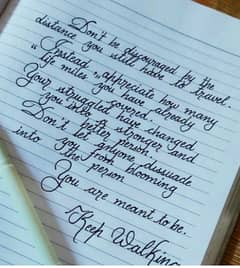 Don't be discouraged by the
distance you still have to travel.
"Instead", appreciate how many
life miles you have already
covered.
Your struggles have changed
you into
a better stronger and
person.
Don't let anyone dissuade
you from blooming
into the person
You are meant to be.
Keep Walking